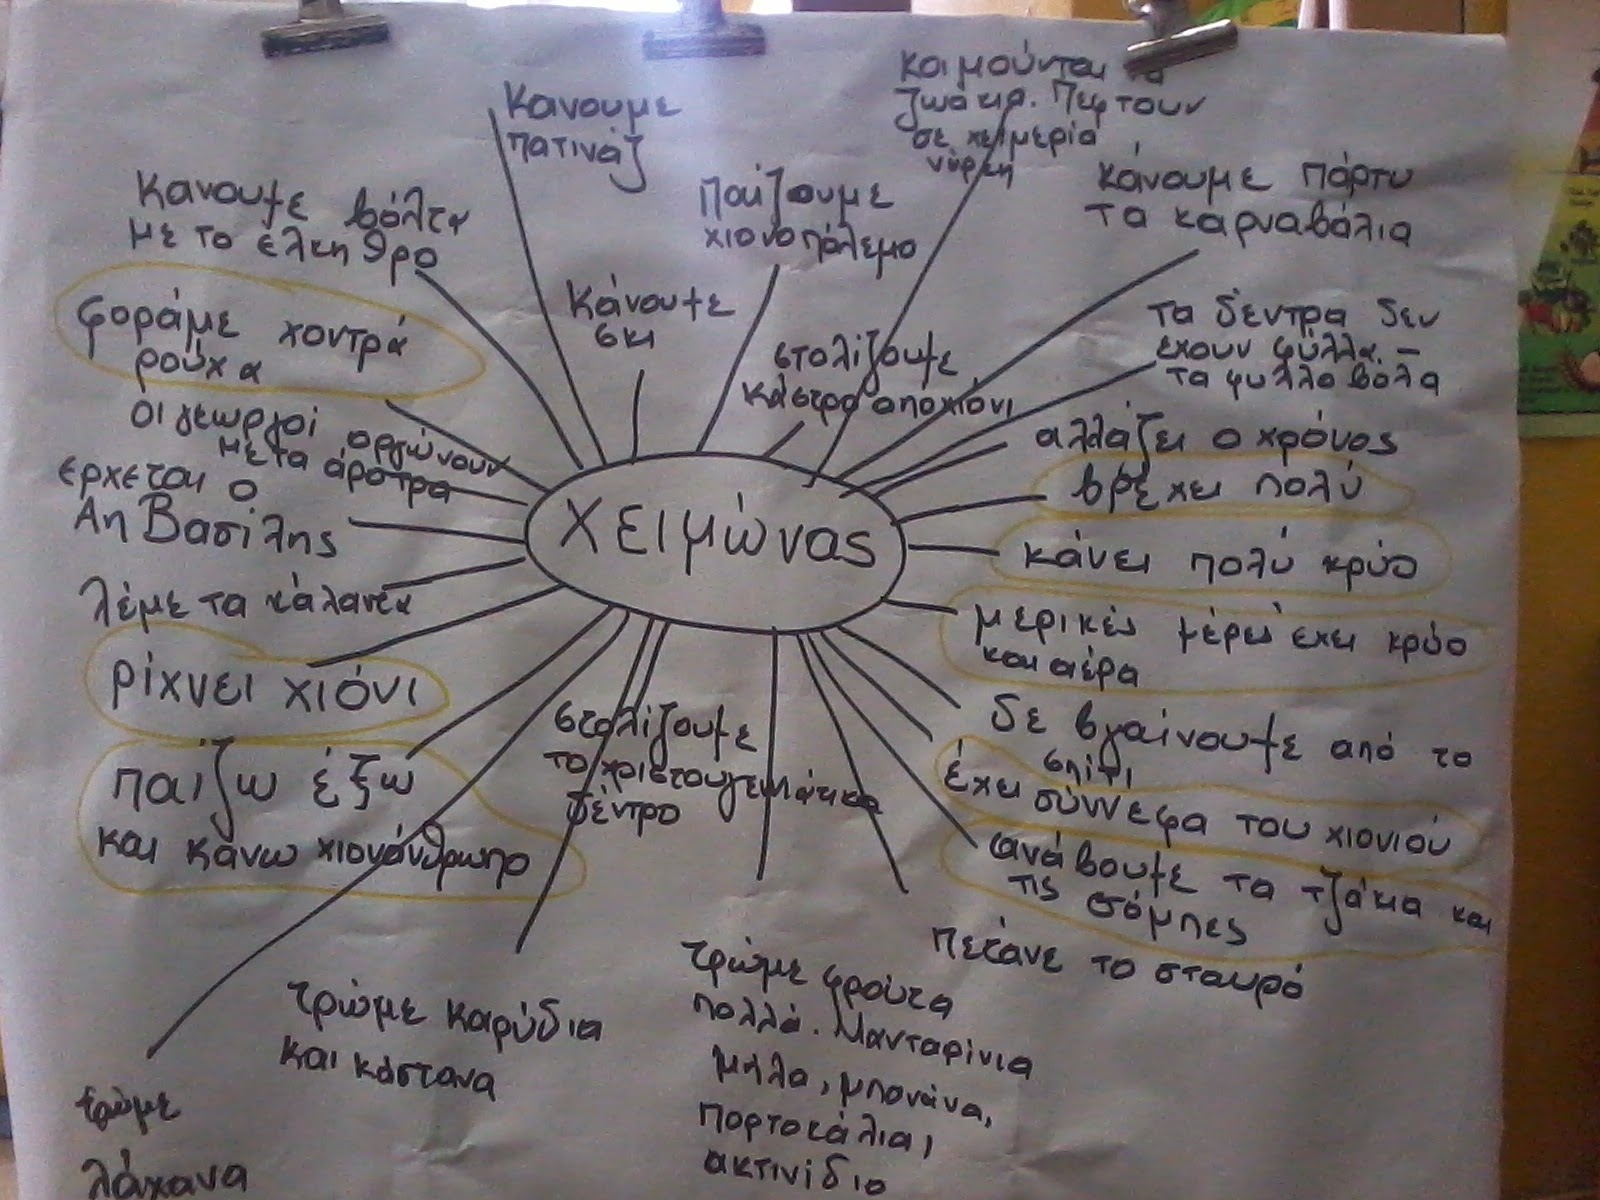 Κανουμε
πατινάζ
κοιμούνται τα
ζωάκια. Πεφτουν
σε χειμερία
νάρκη
Κανουμε βόλτα
με το έλκηθρο
Παίζουμε
χιονοπόλεμο
κάνουμε πάρτυ
τα καρναβάλια
φοράμε χοντρά
ρούχα
Κάνουμε
σκι
στολίζουμε
κάστρο απο χιόνι
τα δέντρα δεν
εχουν φύλλα. -
τα φυλλοβόλα
οι γεωργοί οργώνουν
με τα άροτρα
αλλάζει ο χρόνος
ερχεται ο
Αη Βασίλης
βρέχει πολύ
Χειμώνας
κάνει πολύ κρύο
λέμε τα κάλαντα
μερικές μέρες έχει κρύο
και αέρα
ρίχνει χιόνι
δε βγαίνουμε από το
σπίτι
παίζω έξω
και κάνω χιονάνθρωπο
στολίζουμε
το χριστουγεννιάτικο
δέντρο
έχει σύννεφα του χιονιού
ανάβουμε τα τζάκια και
τις σόμπες
πετάνε το σταυρό
τρώμε καρύδια
και κάστανα
τρώμε φρούτα
πολλά. Μανταρίνια
μήλα, μπανάνα,
πορτοκάλια,
ακτινίδιο
τρώμε
λάχανα